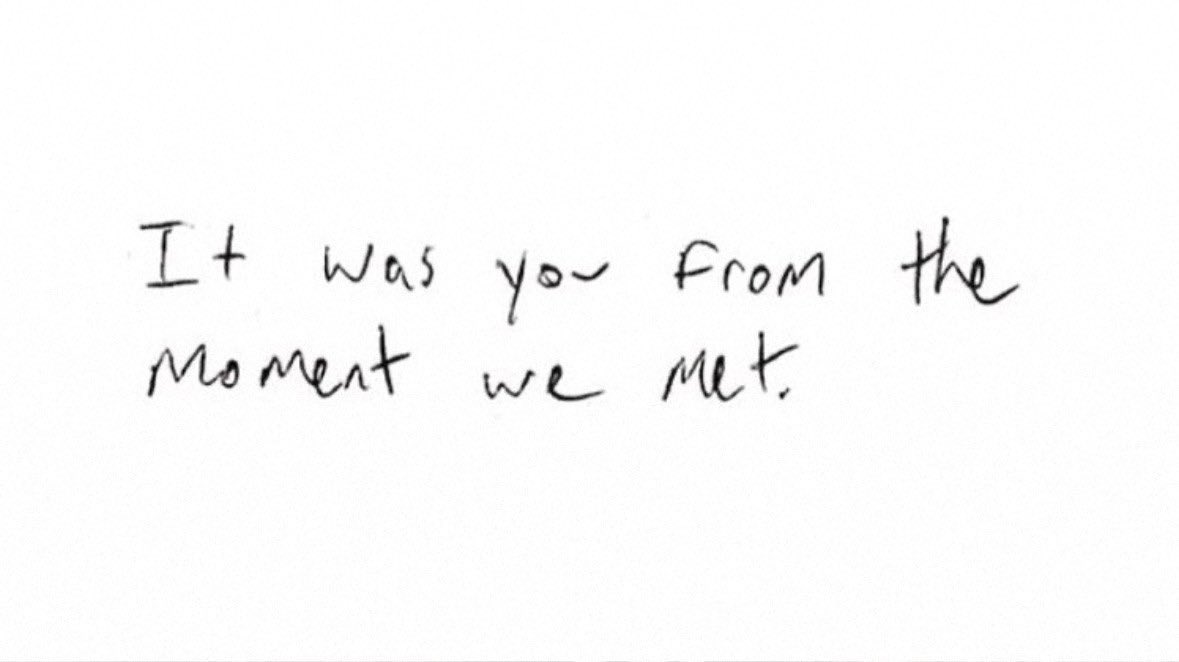 It was you from the
moment we met.